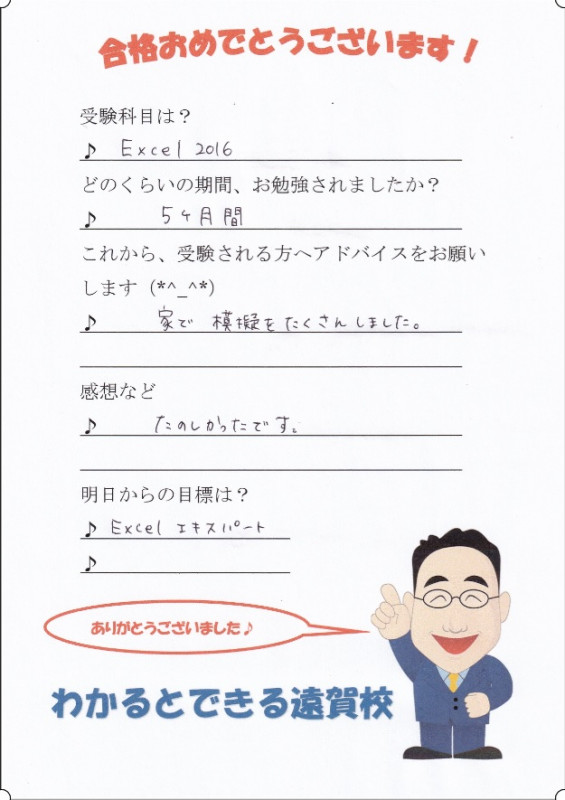 合格おめでとうございます！
受験科目は？
♪ Excel 2016
どのくらいの期間、お勉強されましたか？
♪ 5ヶ月間
これから、受験される方へアドバイスをお願い
します (*^_^*)
♪ 家で 模擬をたくさんしました。
感想など
♪ たのしかったです。
明日からの目標は？
♪ Excel エキスパート
♪
ありがとうございました♪
わかるとできる遠賀校